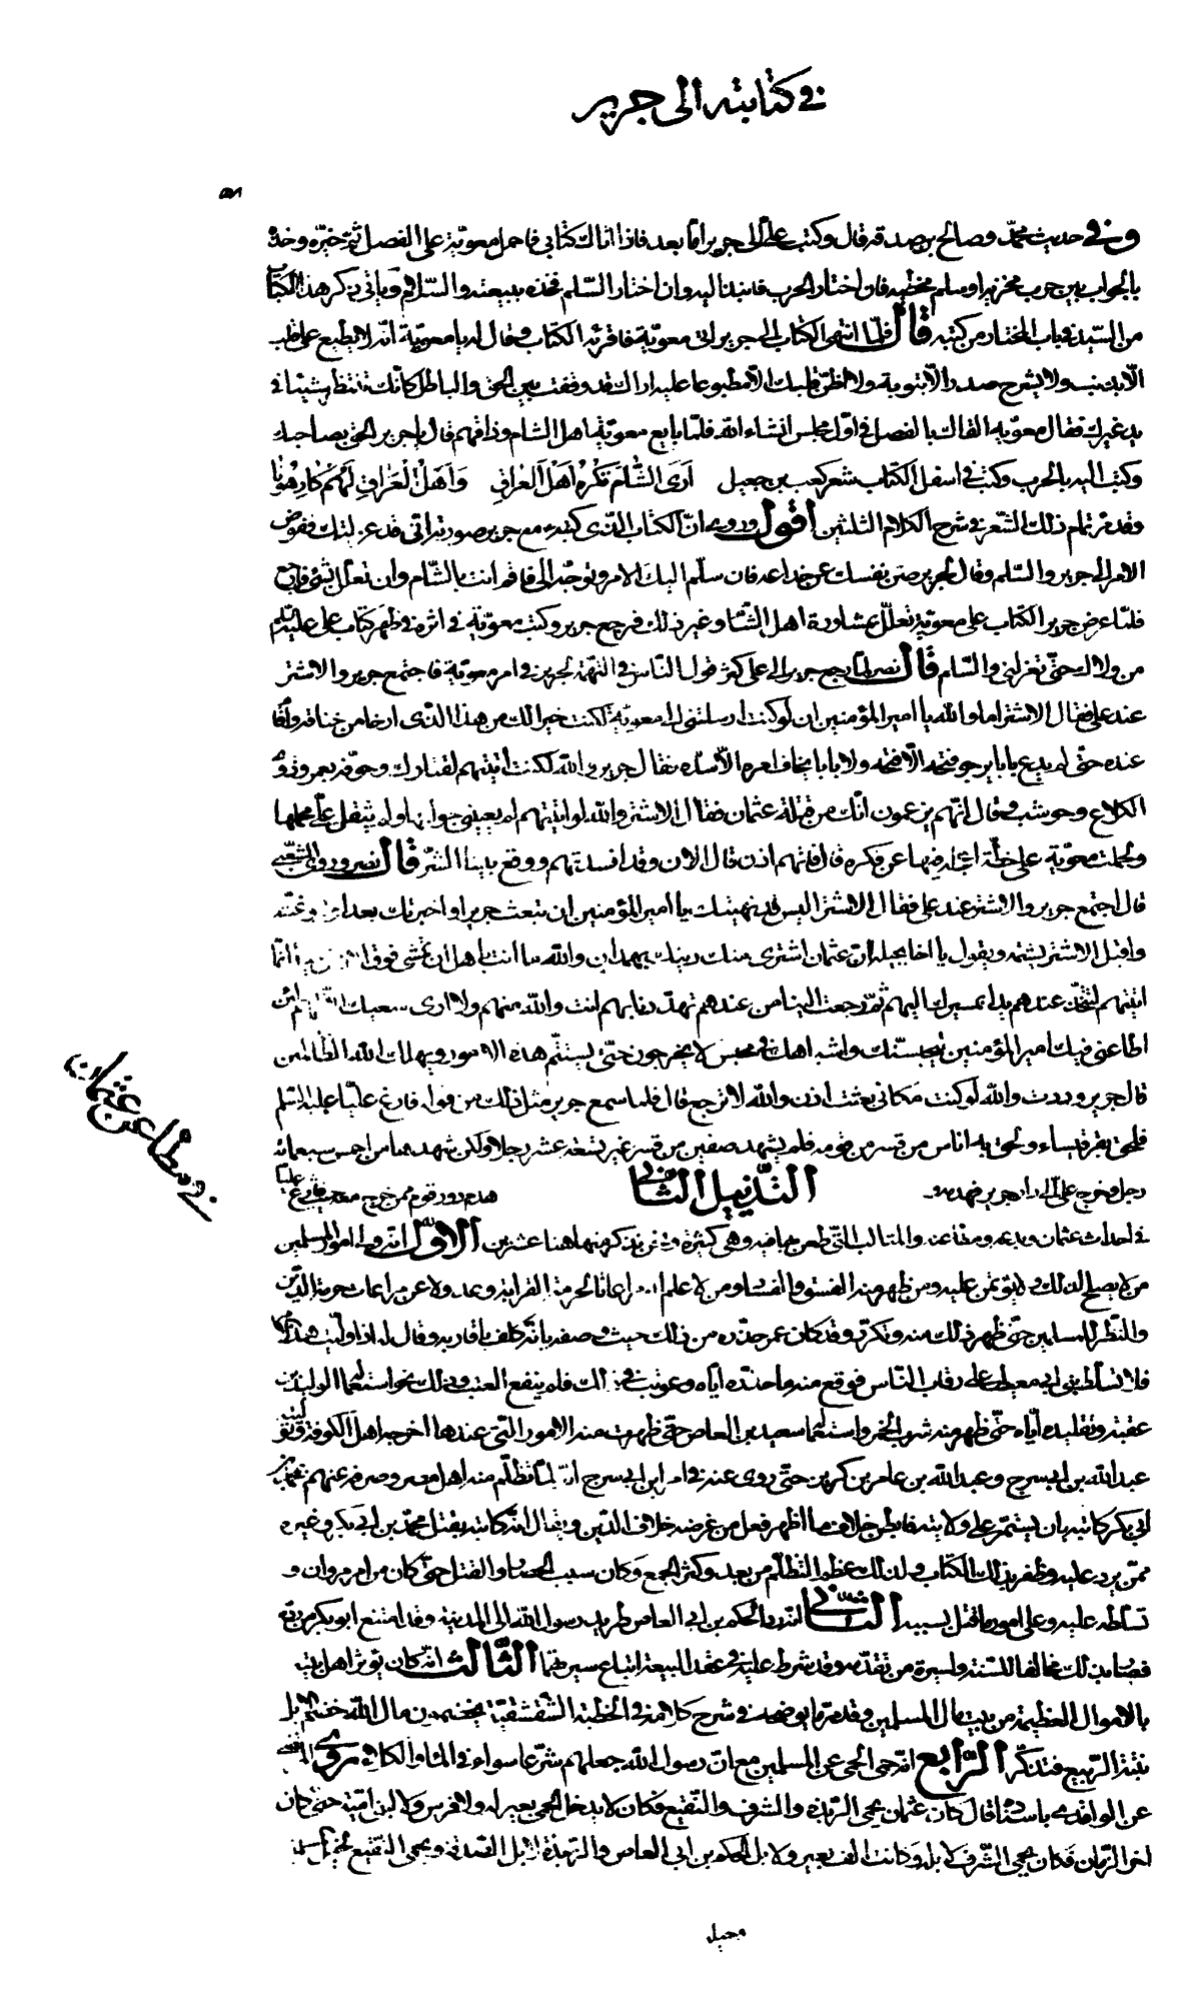 في كتابته الى جرير
وفي حديث محمّد وصالح بن صدقه قال وكتب علي الى جرير امّا بعد فاذا اتاك كتابي فاحمل معوية على الفصل ثم خيّره وخذه
بالجواب بين حرب مخزية او سلم محظية فان اختار الحرب فانبذ اليه وان اختار السّلم فخذه ببيعته والسّلام وياتي ذكر هذا الكتاب
من السّيد في باب المختار من كتبه قال فلمّا انتهى الكتاب الى جرير اتى معوية فاقرئه الكتاب وقال له يا معوية انّه لا يطبع على قلب
الّا بذنب ولا يشرح صدر الّا بتوبة ولا اظنّ قلبك الّا مطبوعا عليه اراك قد وقفت بين الحق والباطل كانّك تنتظر شيئا في
يد غيرك فقال معوية القاك بالفصل في اوّل مجلس انشاء الله فلمّا بايع معوية اهل الشام وذاقهم قال يا جرير الحق بصاحبك
وكتب اليه بالحرب وكتب في اسفل الكتاب شعر كعب بن جعيل ارى الشّام تكره اهل العراق واهل العراق لهم كارهونا
وقد مرّ تمام ذلك الشّعر في شرح الكلام الثلثين اقول وروى انّ الكتاب الّذي كتبه مع جرير صورته انّي قد عزلتك ففوّض
الامر الى جرير والسّلم وقال لجرير صن نفسك عن خداعه فان سلّم اليك الامر وتوجّه الىّ فاقم انت بالشّام وان تعلّل بشئ فارجع
فلمّا عرض جرير الكتاب على معوية تعلّل بمشاورة اهل الشّام وغير ذلك فرجع جرير وكتب معوية في اثره في ظهر كتاب علي عليه السّلم
من ولاّك حتى تعزلني والسّلم قال نصر لمّا رجع جرير الى علي كثر قول النّاس في التهمة لجرير في امر معوية فاجتمع جرير والاشتر
عند علي فقال الاشتر اما والله يا امير المؤمنين ان لو كنت ارسلتني الى معوية لكنت خيرا لك من هذا الّذي ارخا من خناقه واقام
عنده حتى لم يدع بابا يرجو فتحه الّا فتحه ولا بابا يخاف امره الّا سدّه فقال جرير والله لو كنت اتيتهم لقتلوك وخوّفه بعمرو وذي
الكلاع وحوشب وقال انّهم يزعمون انّك من قتلة عثمان فقال الاشتر والله لو اتيتهم لم يعيني جوابها ولم يثقل عليّ محملها
ولحملت معوية على خطّة اعجله فيها عن فكره قال فاتهم اذن قال الان وقد افسدتهم ووقع بيننا الشّر قال نصر وروى الشعبي
قال اجتمع جرير والاشتر عند علي فقال الاشتر اليس قد نهيتك يا امير المؤمنين ان تبعث جريرا واخبرتك بعداوته وغشّه
واقبل الاشتر يشتمه ويقول يا اخا بجيلة انّ عثمان اشترى منك دينك بهمدان والله ما انت باهل ان تمشي فوق الارض انّما
اتيتهم لتتّخذ عندهم يدا بمسيرك اليهم ثمّ رجعت الينا من عندهم تهدّدنا بهم انت والله منهم ولا ارى سعيك الّا لهم لئن
اطاعني فيك امير المؤمنين ليحبسنّك واشباهك في محبس لا يخرجون حتّى يستتمّ هذه الامور ويهلك الله الظالمين
قال جرير وددت والله لو كنت مكاني بعثت اذن والله لا ترجع قال فلما سمع جرير مثل ذلك من قوله فارغ عليّا عليه السّلم
فلحق بقرقيساء ولحق به اناس من قسر من قومه فلم يشهد صفين من قسر غير تسعة عشر رجلا ولكن شهدها من احمس سبعمائة
رجل وخرج علي الى دار جرير فهدمه وهدم دور قوم ممن خرج معه حيث فارغ عليا
التّذييل الثاني
في مطاعن عثمان
في احداث عثمان وبدعه ومطاعنه والمثالب التّي طعن بها فيه وهي كثيرة ونحن نذكر منها هنا عشرين الاوّل انّه ولى امور المسلمين
من لا يصلح لذلك ولا يؤتمن عليه ومن ظهر منه الفسق والفساد ومن لا علم له مراعاتا لحرمة القرابة وعدولا عن مراعات حرمة الدّين
والنّظر للمسلمين حتّى ظهر ذلك منه وتكرّر وقد كان عمر حذّره من ذلك حيث وصفه بانّه كلف باقاربه وقال له اذا وليت هذا الامر
فلا تسلّط بني ابي معيط على رقاب النّاس فوقع منه ما حذّره ايّاه وعوتب في ذلك فلم ينفع العتب وذلك نحو استعماله الوليد بن
عقبة وتقليده ايّاه حتّى ظهر منه شرب الخمر واستعماله سعيد بن العاص حتّى ظهرت منه الامور الّتي عندها اخرجه اهل الكوفة وتوليته
عبد الله بن ابي سرح وعبد الله بن عامر بن كريز حتّى روى عنه في امر ابن ابي سرح انّه لمّا تظلّم منه اهل مصر وصرفه عنهم بمحمّد بن
ابي بكر كاتبه بان يستمرّ على ولايته فابطن خلاف ما اظهر فعل من غرضه خلاف الدّين ويقال انّه كاتبه بقتل محمّد بن ابي بكر وغيره
ممّن يرد عليه وظفر بذلك الكتاب ولذلك عظم التّظلّم من بعد وكثر الجمع وكان سبب الحصار والقتل حتّى كان من امر مروان و
تسلّطه عليه وعلى اموره ما قتل بسببه الثّاني انّه ردّ الحكم بن ابي العاص طريد رسول الله الى المدينة وقد امتنع ابو بكر من ردّه
فصار بذلك مخالفا للسّنة ولسيرة من تقدّمه وقد شرط عليه في عقد البيعة اتّباع سيرتهما الثّالث انّه كان يؤثر اهل بيته
بالاموال العظيمة من بيت مال المسلمين وقد مرّ ما يوضحه في شرح كلامه في الخطبة الشّقشقيّة يخضمون مال الله خضم الابل
نبتة الرّبيع فتذكّر الرّابع انّه حمى الحمى عن المسلمين مع انّ رسول الله جعلهم شرّعا سواء في الماء والكلاء روى
عن الواقدي باسناده قال كان عثمان يحمي الرّبذة والشرف والنّقيع فكان لا يدخل الحمى بعير له ولا فرس ولا لبني اميّة حتى كان
اخر الزّمان فكان يحمي الشّرف لابله وكانت الف بعير ولابل الحكم بن ابي العاص والرّبذة لابل الصّدقة ويحمي النّقيع لخيل
وخيل